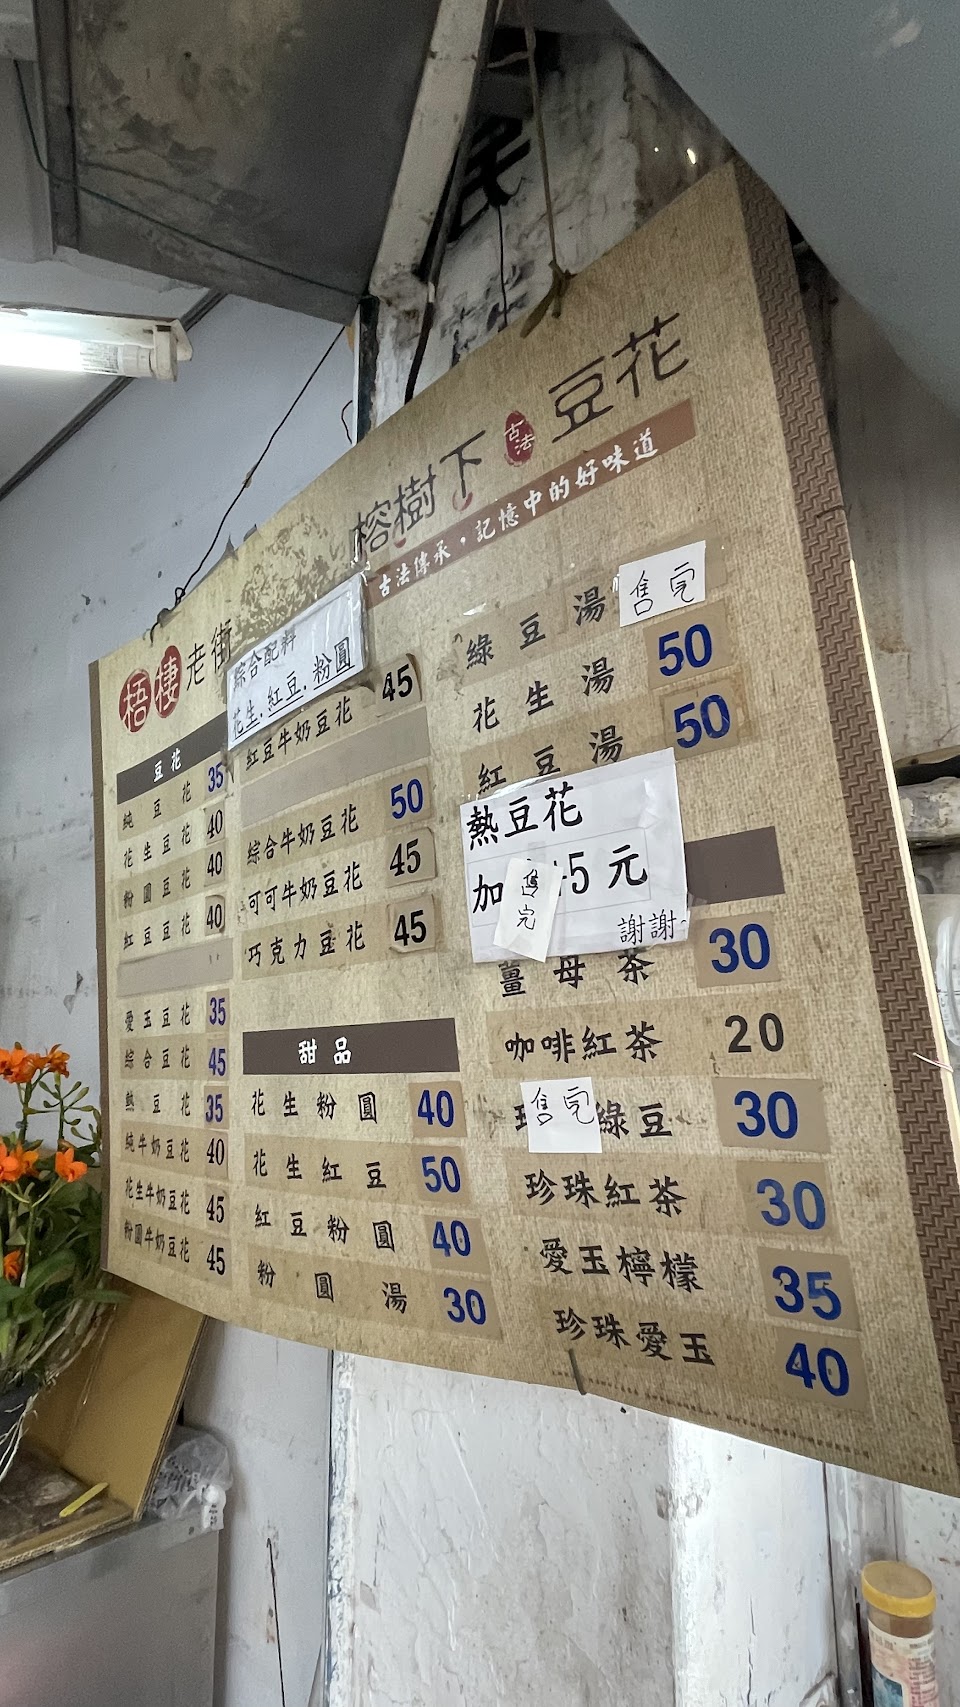 梧棲老街
榕樹下 古法 豆花
古法傳承，記憶中的好味道
綜合配料
花生.紅豆.粉圓
豆花
純豆花 35
花生豆花 40
粉圓豆花 40
紅豆豆花 40
愛玉豆花 35
綜合豆花 45
熱豆花 35
純牛奶豆花 40
花生牛奶豆花 45
粉圓牛奶豆花 45
紅豆牛奶豆花 45
綜合牛奶豆花 50
可可牛奶豆花 45
巧克力豆花 45
甜品
花生粉圓 40
花生紅豆 50
紅豆粉圓 40
粉圓湯 30
綠豆湯 售完
花生湯 50
紅豆湯 50
熱豆花
加 5元
售完
謝謝~
薑母茶 30
咖啡紅茶 20
售完 綠豆 30
珍珠紅茶 30
愛玉檸檬 35
珍珠愛玉 40